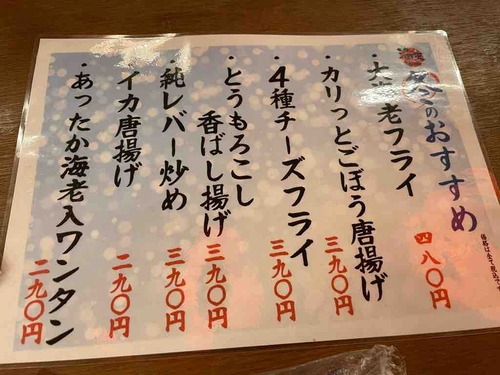 のおすすめ
価格は全て税込です
老フライ 四八〇円
・カリっとごぼう唐揚げ 三九〇円
・4種チーズフライ 三九〇円
・とうもろこし
香ばし揚げ 三九〇円
・純レバー炒め 三九〇円
・イカ唐揚げ 二九〇円
・あったか海老入ワンタン 二九〇円